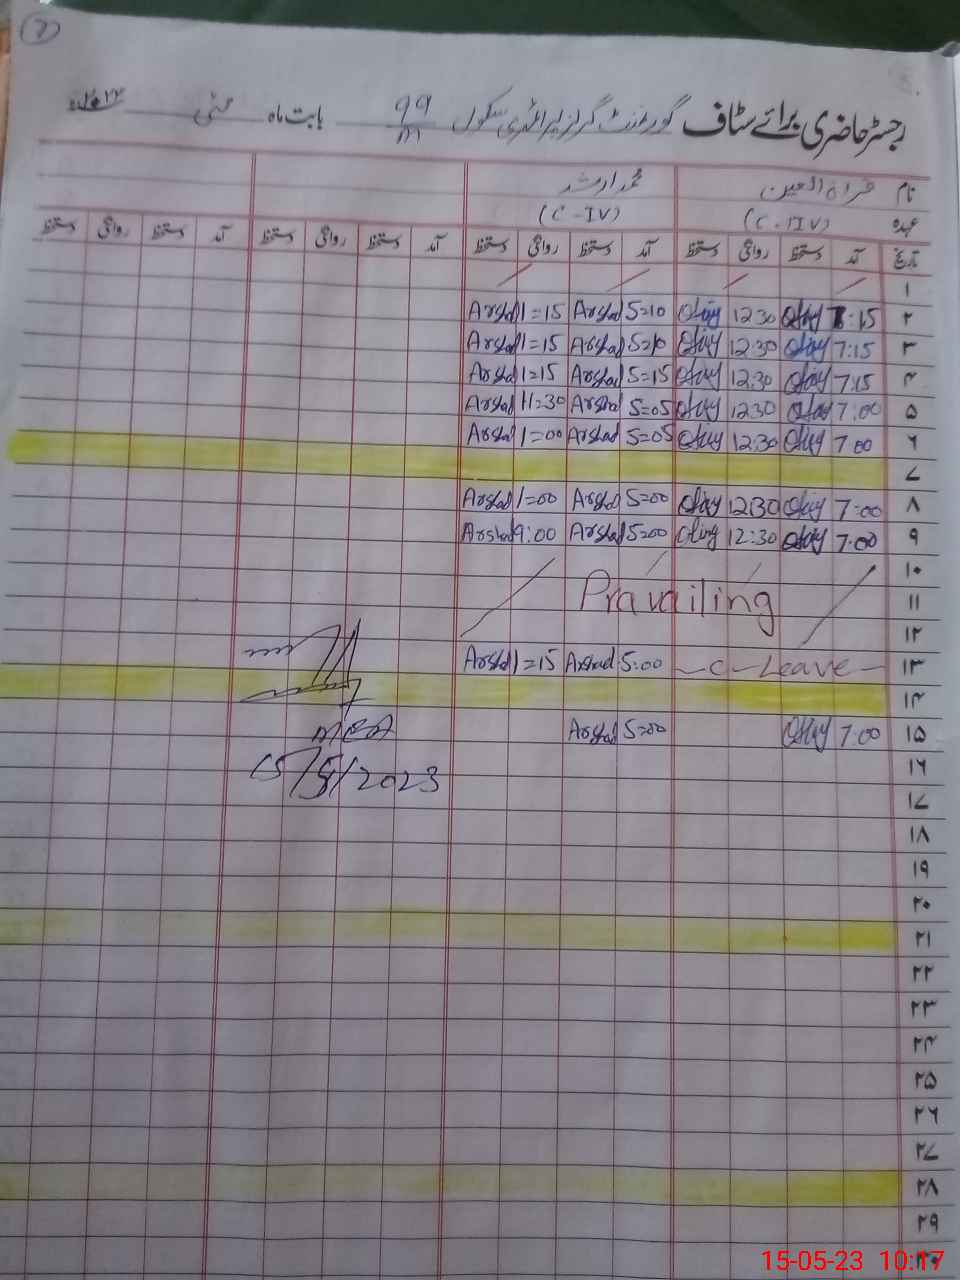 (2)
رجسٹر حاضری برائے سٹاف گورنمنٹ گرلز ایلیمنٹری سکول 99/M بابت ماہ مئی
نام قراۃ العین محمد ارشد
عہدہ (C-IV) (C-IV)
تاریخ آمد دستخط روانگی دستخط آمد دستخط روانگی دستخط آمد دستخط روانگی دستخط آمد دستخط روانگی دستخط
۱
Arshad 1=15 Arshad 5=10 12:30 7:15 ۲
Arshad 1=15 Arshad 5=10 12:30 7:15 ۳
Arshad 1=15 Arshad 5=15 12:30 7:15 ۴
Arshad 11=30 Arshad 5=05 12:30 7:00 ۵
Arshad 1=00 Arshad 5=05 12:30 7:00 ۶
۷
Arshad 1=00 Arshad 5=00 12:30 7:00 ۸
Arshad 9:00 Arshad 5=00 12:30 7:00 ۹
۱۰
Pravailing ۱۱
۱۲
Arshad 1=15 Arshad 5:00 -C-Leave- ۱۳
۱۴
MEA Arshad 5=00 7:00 ۱۵
15/5/2023 ۱۶
۱۷
۱۸
۱۹
۲۰
۲۱
۲۲
۲۳
۲۴
۲۵
۲۶
۲۷
۲۸
۲۹
۳۰
15-05-23 10:17